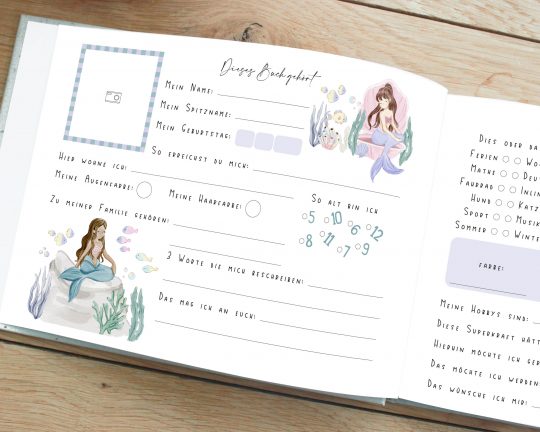 Dieses Buch gehört
Mein Name:
Mein Spitzname:
Mein Geburtstag:
So erreichst du mich:
Hier wohne ich:
Meine Augenfarbe:
Meine Haarfarbe:
So alt bin ich
5 10 6 12
8 11 7 9
Zu meiner Familie gehören:
3 Worte die mich beschreiben:
Das mag ich an euch:
Dies oder da
Ferien Wo
Mathe Deu
Fahrrad Inlin
Hund Katz
Sport Musik
Sommer Winte
Farbe:
Meine Hobbys sind:
Diese Superkraft hätt
Hierhin möchte ich ger
Das möchte ich werden
Das wünsche ich mir: